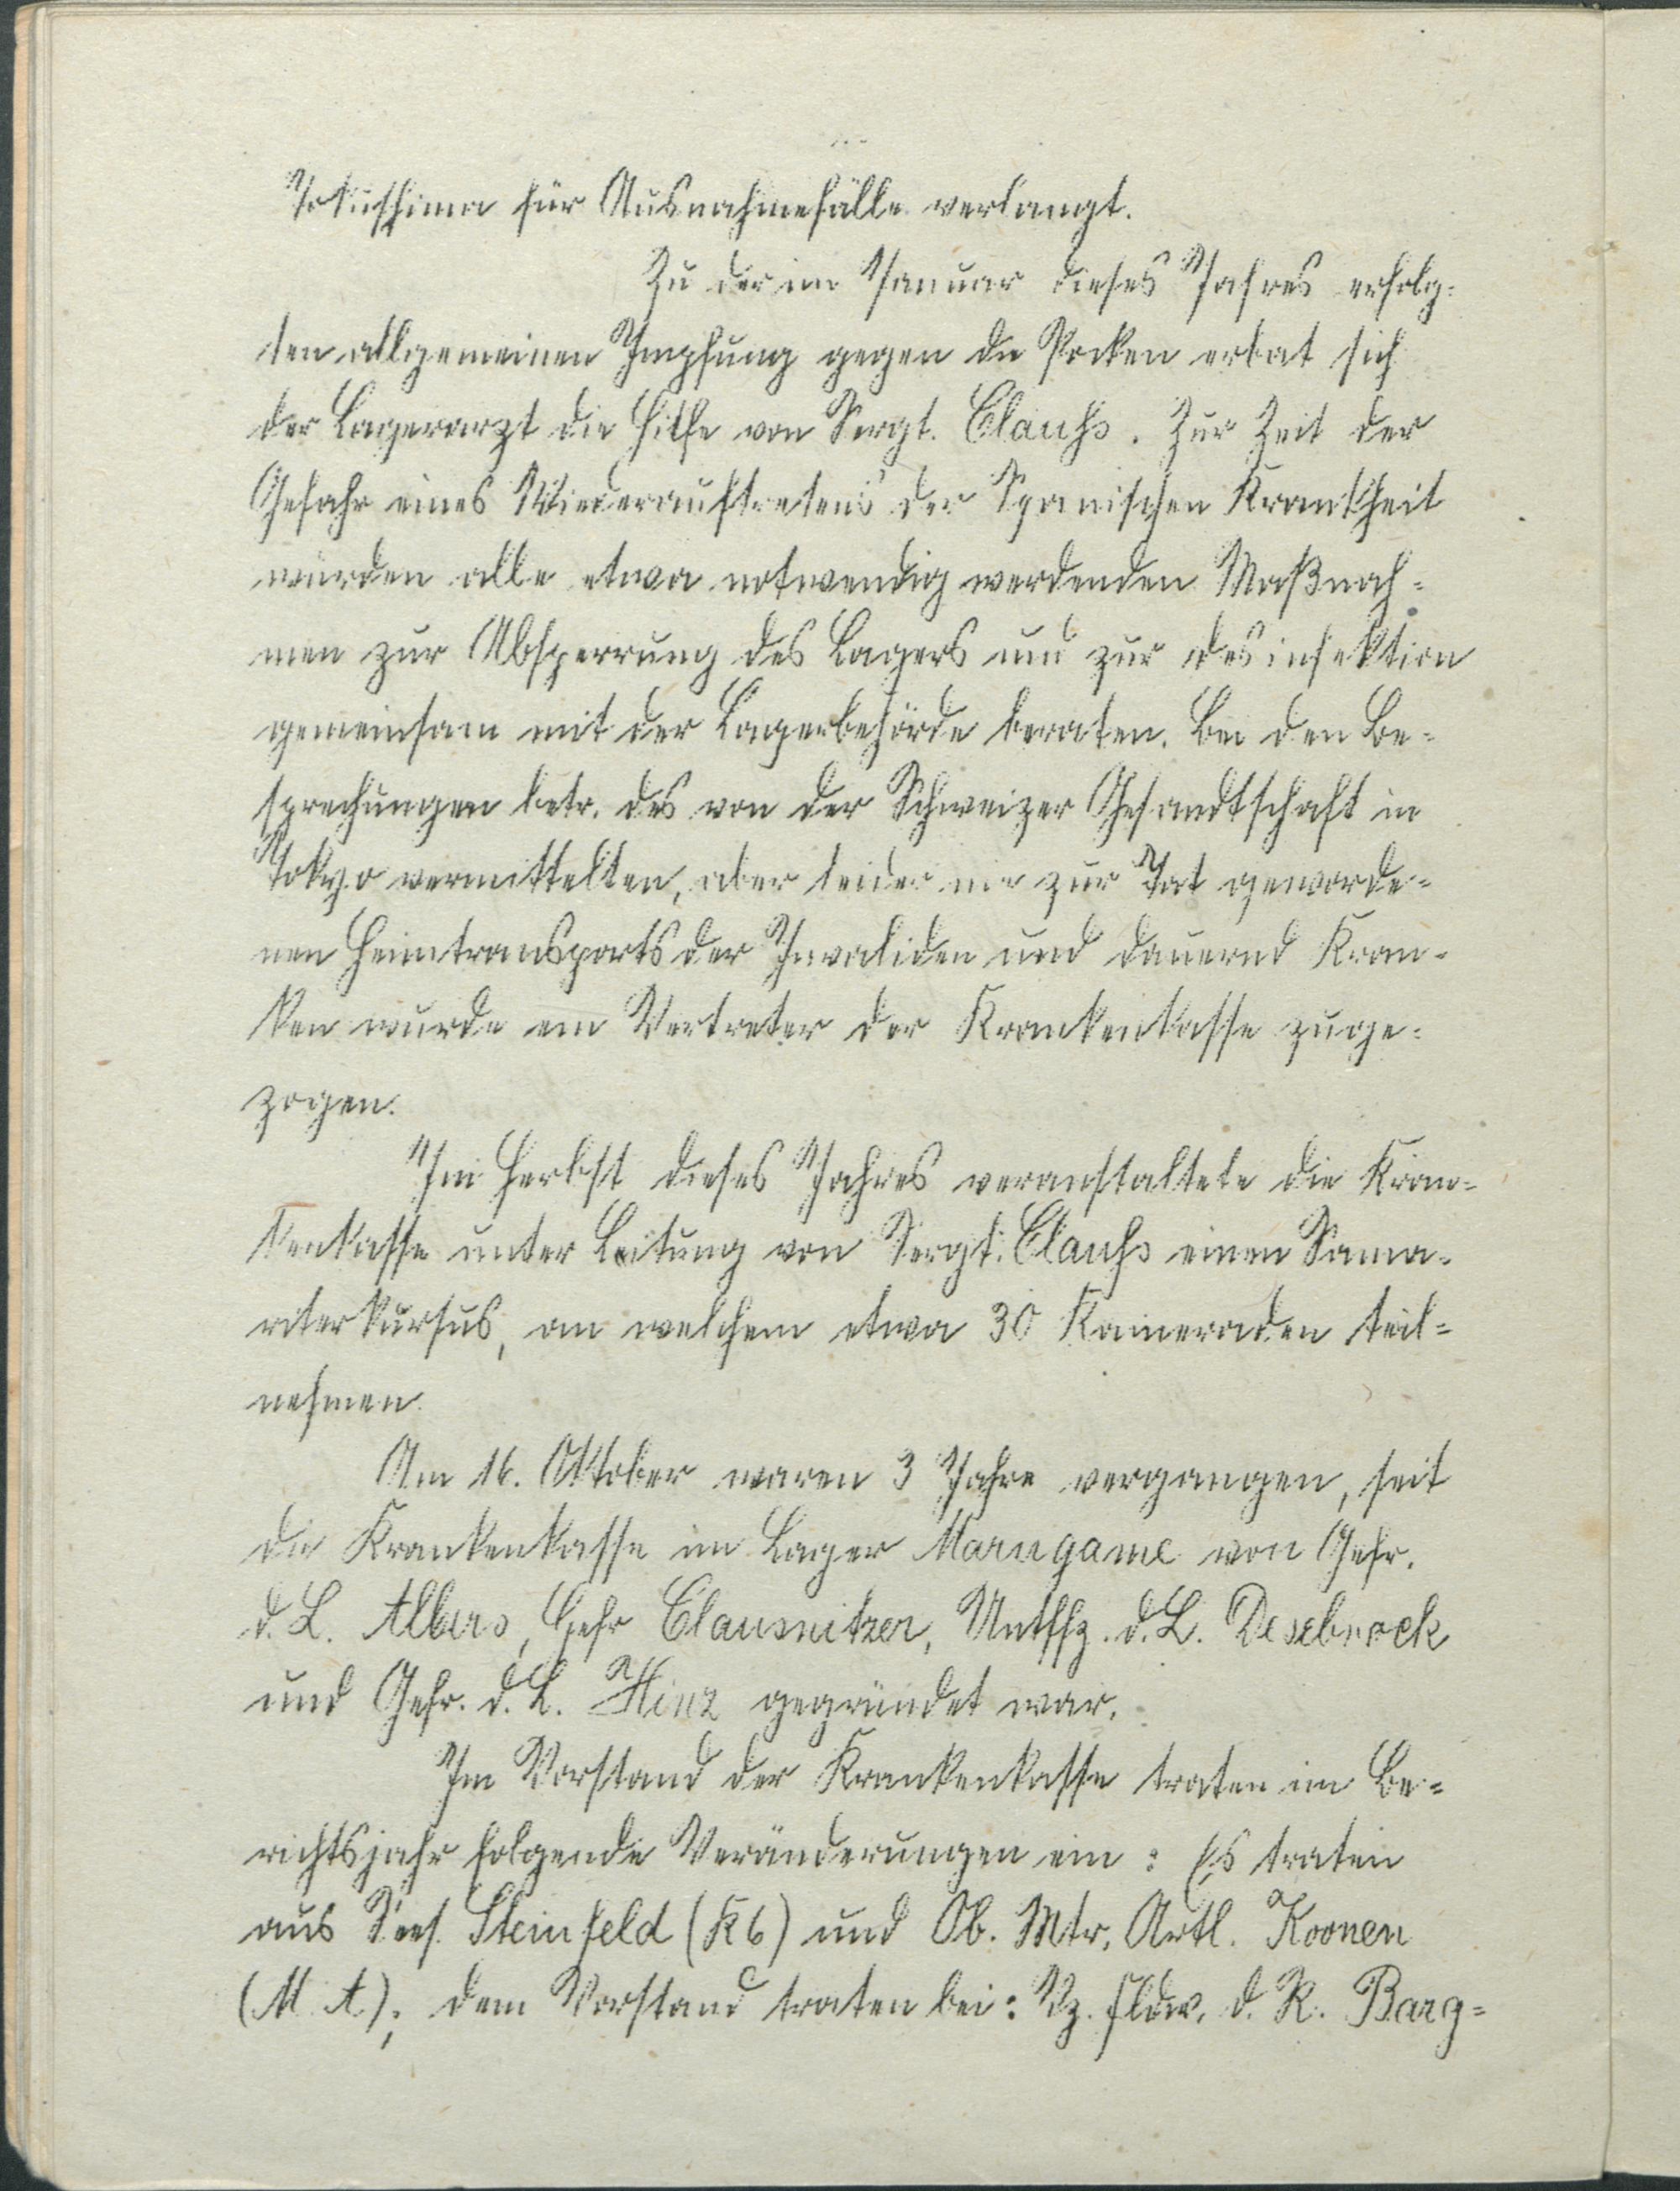 Tokushima für Ausnahmefälle verlangt.
Zu der im Januar dieses Jahres erfolg-
ten allgemeinen Impfung gegen die Pocken erbat sich
der Lagerarzt die Hilfe von Sergt. Clauss. Zur Zeit der
Gefahr eines Wiederauftretens der Spanischen Krankheit
wurden alle etwa notwendig werdenden Maßnah-
men zur Absperrung des Lagers und zur desinfektion
gemeinsam mit der Lagerbehörde beraten. Bei den Be-
sprechungen betr. des von der Schweizer Gesandtschaft in
Tokyo vermittelten, aber leider nie zur Tat geworde-
nen Heimtransports der Invaliden und dauernd Kran-
ken wurde ein Vertreter der Krankenkasse zuge-
zogen.
Im Herbst dieses Jahres veranstaltete die Kran-
kenkasse unter Leitung von Sergt. Clauss einen Sama-
riterkursus, an welchem etwa 30 Kameraden teil-
nehmen.
Am 16. Oktober waren 3 Jahre vergangen, seit
die Krankenkasse im Lager Marugame von Gefr.
d. L. Albers, Gefr Clausnitzer, Untffz. d. L. Desebrock
und Gefr. d. L. Hinz gegründet war.
Im Vorstand der Krankenkasse traten im Be-
richtsjahr folgende Veränderungen ein: Es traten
aus Sees. Steinfeld (K6) und Ob. Mtr. Artl. Koonen
(M.A.); dem Vorstand traten bei: Vz. Fldw. d. R. Barg-